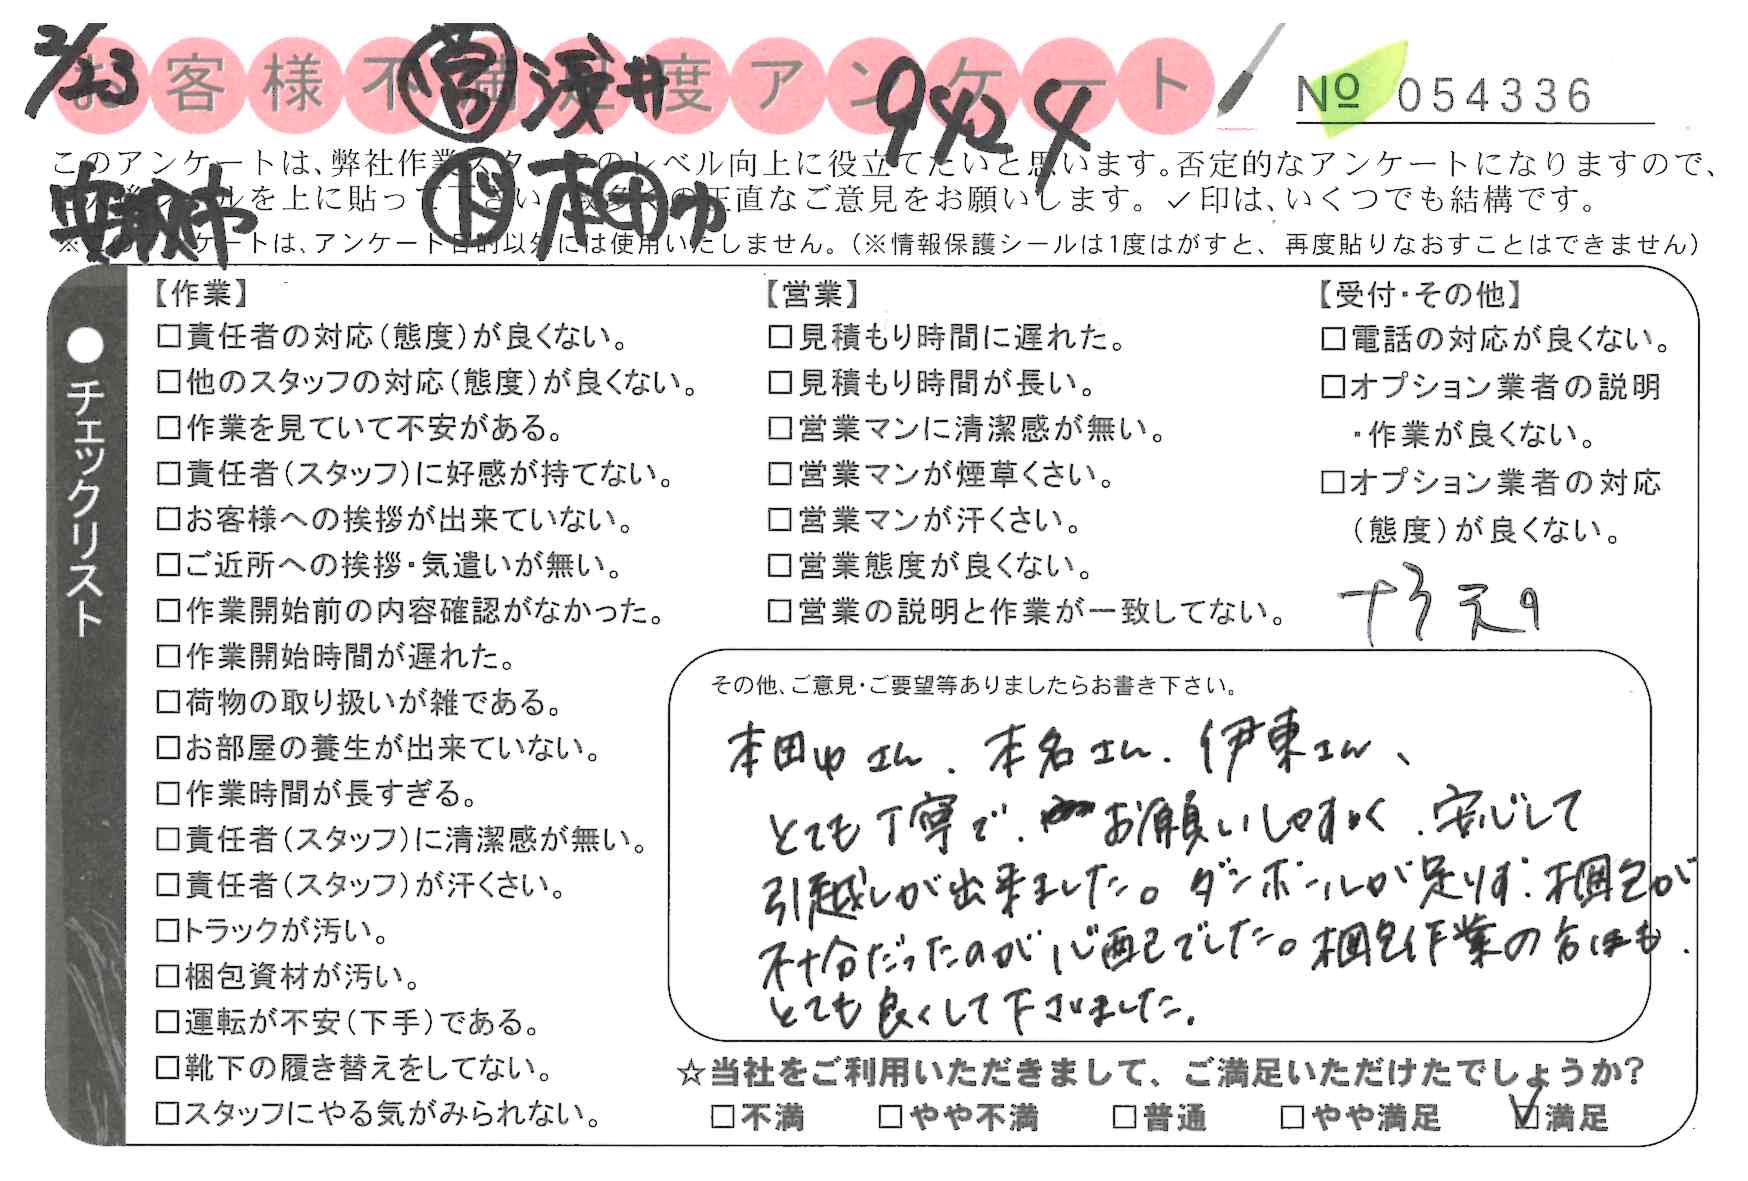 2/23
お客様不満足度アンケート
㊡ 浅井
9424
No 054336
このアンケートは、弊社作業スタッフのレベル向上に役立てたいと思います。否定的なアンケートになりますので、
ルを上に貼って下さい。数多くの正直なご意見をお願いします。✓印は、いくつでも結構です。
安城市
下 本田ゆ
※このアンケートは、アンケート目的以外には使用いたしません。(※情報保護シールは1度はがすと、再度貼りなおすことはできません)
●チェックリスト
【作業】
□責任者の対応(態度)が良くない。
□他のスタッフの対応(態度)が良くない。
□作業を見ていて不安がある。
□責任者(スタッフ)に好感が持てない。
□お客様への挨拶が出来ていない。
□ご近所への挨拶・気遣いが無い。
□作業開始前の内容確認がなかった。
□作業開始時間が遅れた。
□荷物の取り扱いが雑である。
□お部屋の養生が出来ていない。
□作業時間が長すぎる。
□責任者(スタッフ)に清潔感が無い。
□責任者(スタッフ)が汗くさい。
□トラックが汚い。
□梱包資材が汚い。
□運転が不安(下手)である。
□靴下の履き替えをしてない。
□スタッフにやる気がみられない。
【営業】
□見積もり時間に遅れた。
□見積もり時間が長い。
□営業マンに清潔感が無い。
□営業マンが煙草くさい。
□営業マンが汗くさい。
□営業態度が良くない。
□営業の説明と作業が一致してない。
【受付・その他】
□電話の対応が良くない。
□オプション業者の説明
・作業が良くない。
□オプション業者の対応
(態度)が良くない。
その他、ご意見・ご要望等ありましたらお書き下さい。
本田ゆさん、本名さん、伊東さん、
とても丁寧で、お願いしやすく、安心して
引越しが出来ました。ダンボールが足りず、梱包が
不十分だったのが心配でした。梱包作業の方はも、
とても良くして下さいました。
☆当社をご利用いただきまして、ご満足いただけたでしょうか?
□不満 □やや不満 □普通 □やや満足 ☑満足